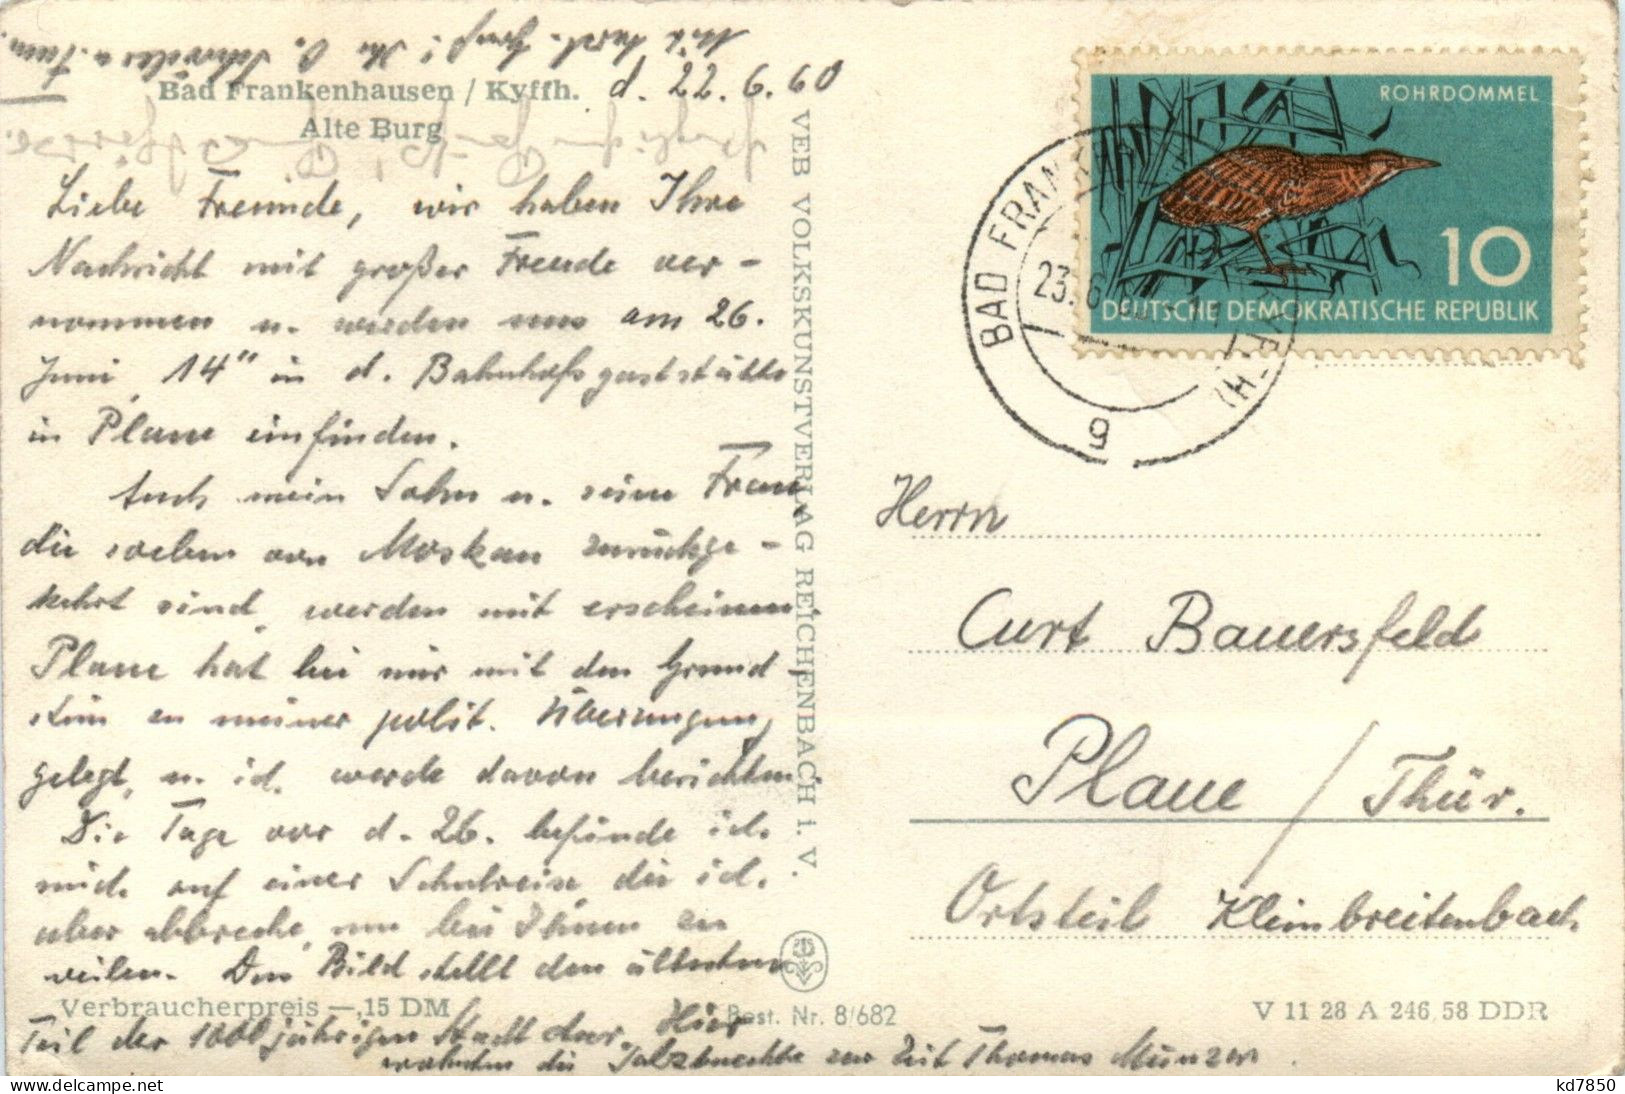 Bad Frankenhausen / Kyffh. d. 22.6.60
Alte Burg
Liebe Freunde, wir haben Ihre
Nachricht mit großer Freude ver-
nommen u. werden uns am 26.
Juni, 14°° in d. Bahnhofsgaststätte
in Plaue einfinden.
Auch mein Sohn u. seine Frau,
die soeben von Moskau zurückge-
kehrt sind, werden mit erscheinen.
Plaue hat bei mir mit den Grund-
stein zu meiner polit. Überzeugung
gelegt, u. ich werde davon berichten
Die Tage vor d. 26. befinde ich
mich auf einer Schulreise die ich
aber abbreche, um bei Ihnen zu
weilen. Das Bild stellt den ältesten
Teil der 1000jährigen Stadt dar. Hier
wohnten die Salzknechte zur Zeit Thomas Münzers.
Verbraucherpreis —,15 DM
Best. Nr. 8/682
V 11 28 A 246 58 DDR
VEB VOLKSKUNSTVERLAG REICHENBACH i. V.
Mit herzl. Gruß: Ihr O. u. Frau.
ROHRDOMMEL
10
DEUTSCHE DEMOKRATISCHE REPUBLIK
BAD FRANKENHAUSEN (KYFFH)
23.6.
g
Herrn
Curt Bauersfeld
Plaue / Thür.
Ortsteil Kleinbreitenbach
kd7850